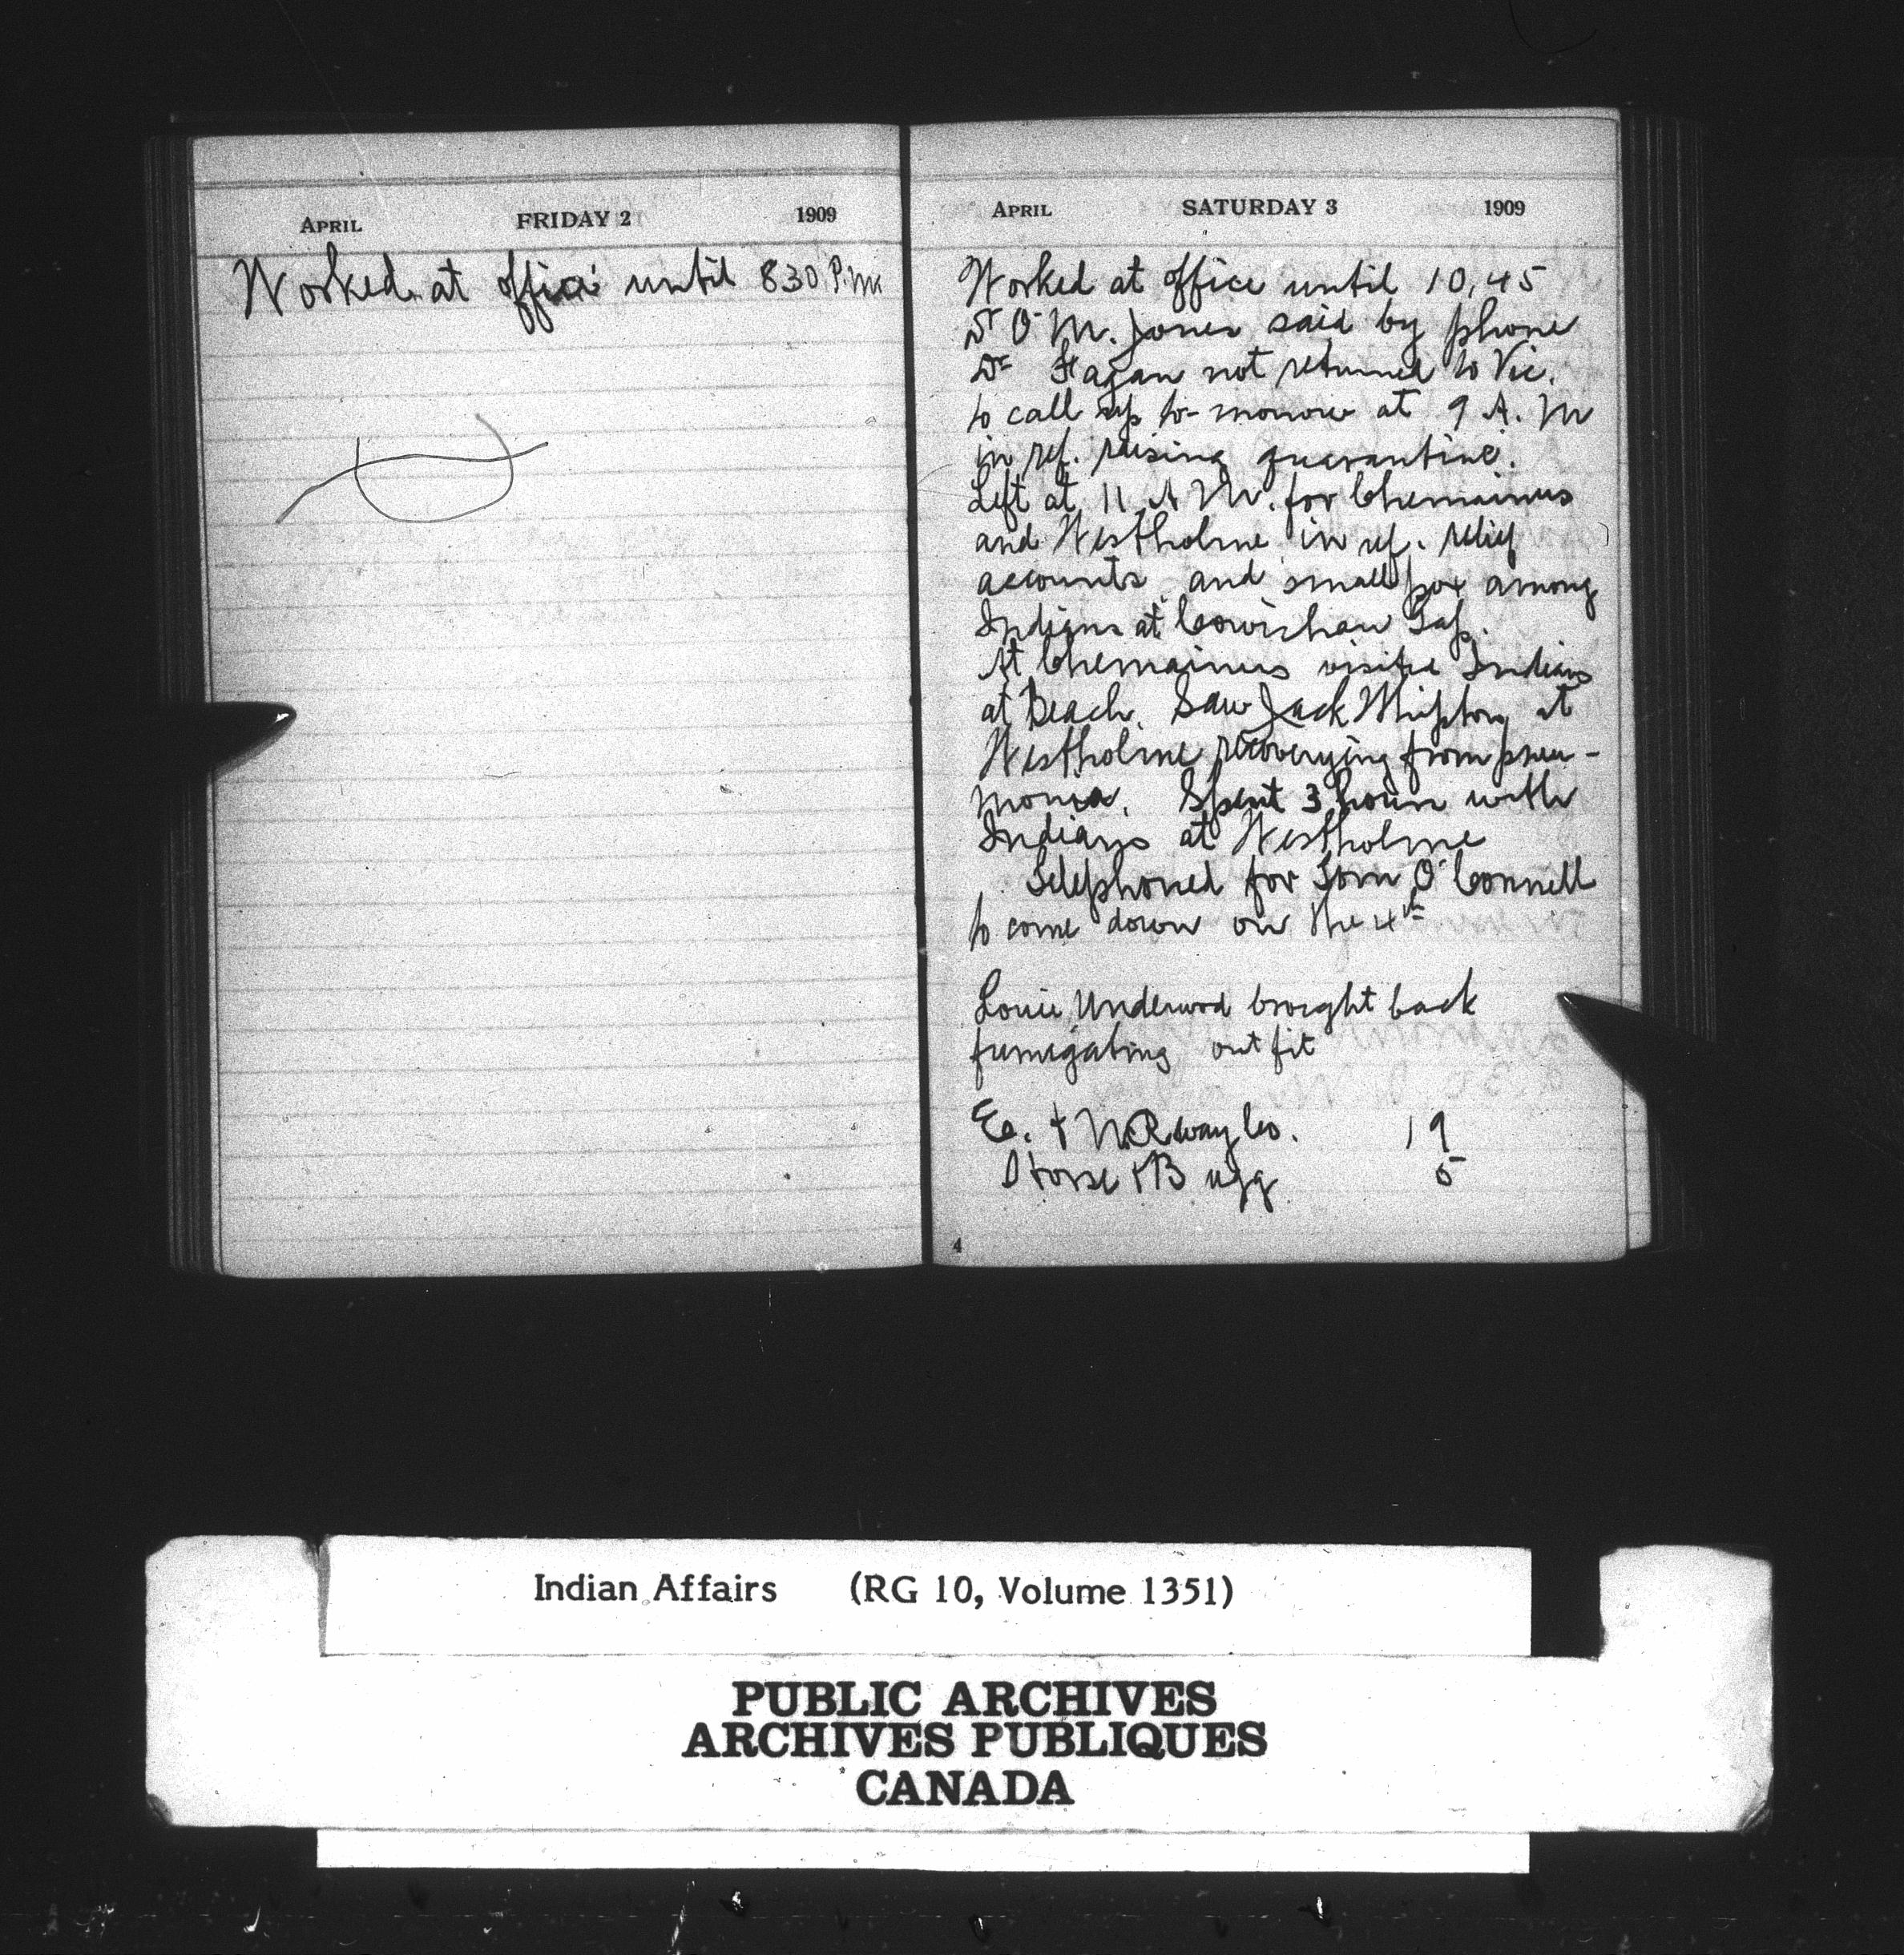 APRIL FRIDAY 2 1909
Worked at office until 830 P.M.
APRIL SATURDAY 3 1909
Worked at office until 10,45
Dr O. M. Jones said by phone
Dr Fagan not returned to Vic.
to call up to-morrow at 9 A. M
in ref. raising quarantine.
Left at 11 A M. for Chemainus
and Westholme in ref. relief
accounts and small pox among
Indians at Cowichan Gap.
At Chemainus visited Indians
at Beach. Saw Jack at
Westholme recovering from pneu-
monia. Spent 3 hours with
Indians at Westholme
Telephoned for Tom O'Connell
to come down on the 4th
Louie Underwood brought back
fumigating outfit
E. + N. Rway Co. 19
Horse + Bugg 5
4
Indian Affairs (RG 10, Volume 1351)
PUBLIC ARCHIVES
ARCHIVES PUBLIQUES
CANADA